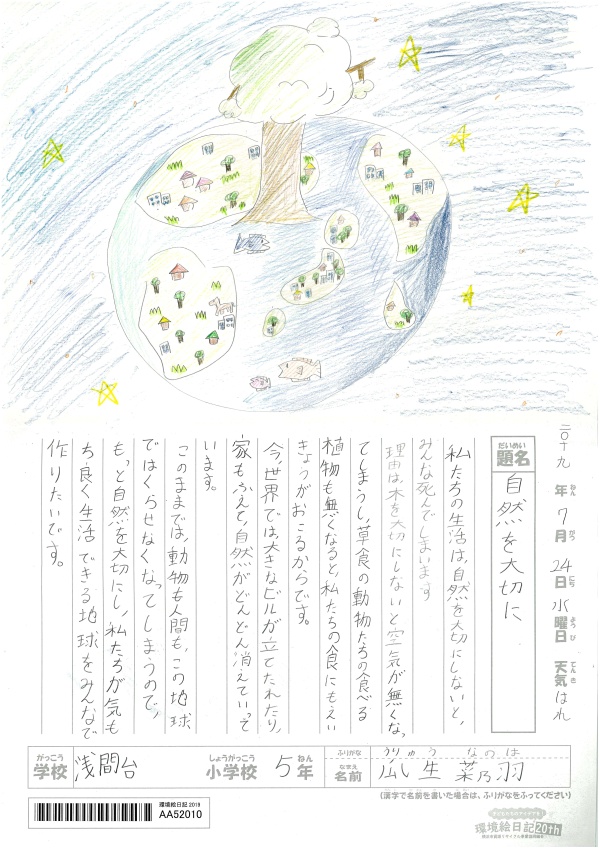 二〇十九年7月24日水曜日 天気はれ
ねん がつ にち ようび てんき
だいめい
題名
自然を大切に
私たちの生活は、自然を大切にしないと、
みんな死んでしまいます
理由は、木を大切にしないと空気が無くなっ
てしまうし、草食の動物たちの食べる
植物も無くなると、私たちの食にもえい
きょうがおこるからです。
今、世界では、大きなビルが立てたれたり、
家もふえて、自然がどんどん消えていって
います。
このままでは、動物も人間も、この地球
ではくらせなくなってしまうので、
もっと自然を大切にし、私たちが気も
ち良く生活できる地球をみんなで
作りたいです。
がっこう
学校
浅間台
しょうがっこう
小学校
5年
ねん
ふりがな
うりゅう なのは
なまえ
名前
瓜生 菜乃羽
(漢字で名前を書いた場合は、ふりがなをふってください)
環境絵日記 2019
AA52010
環境絵日記20th